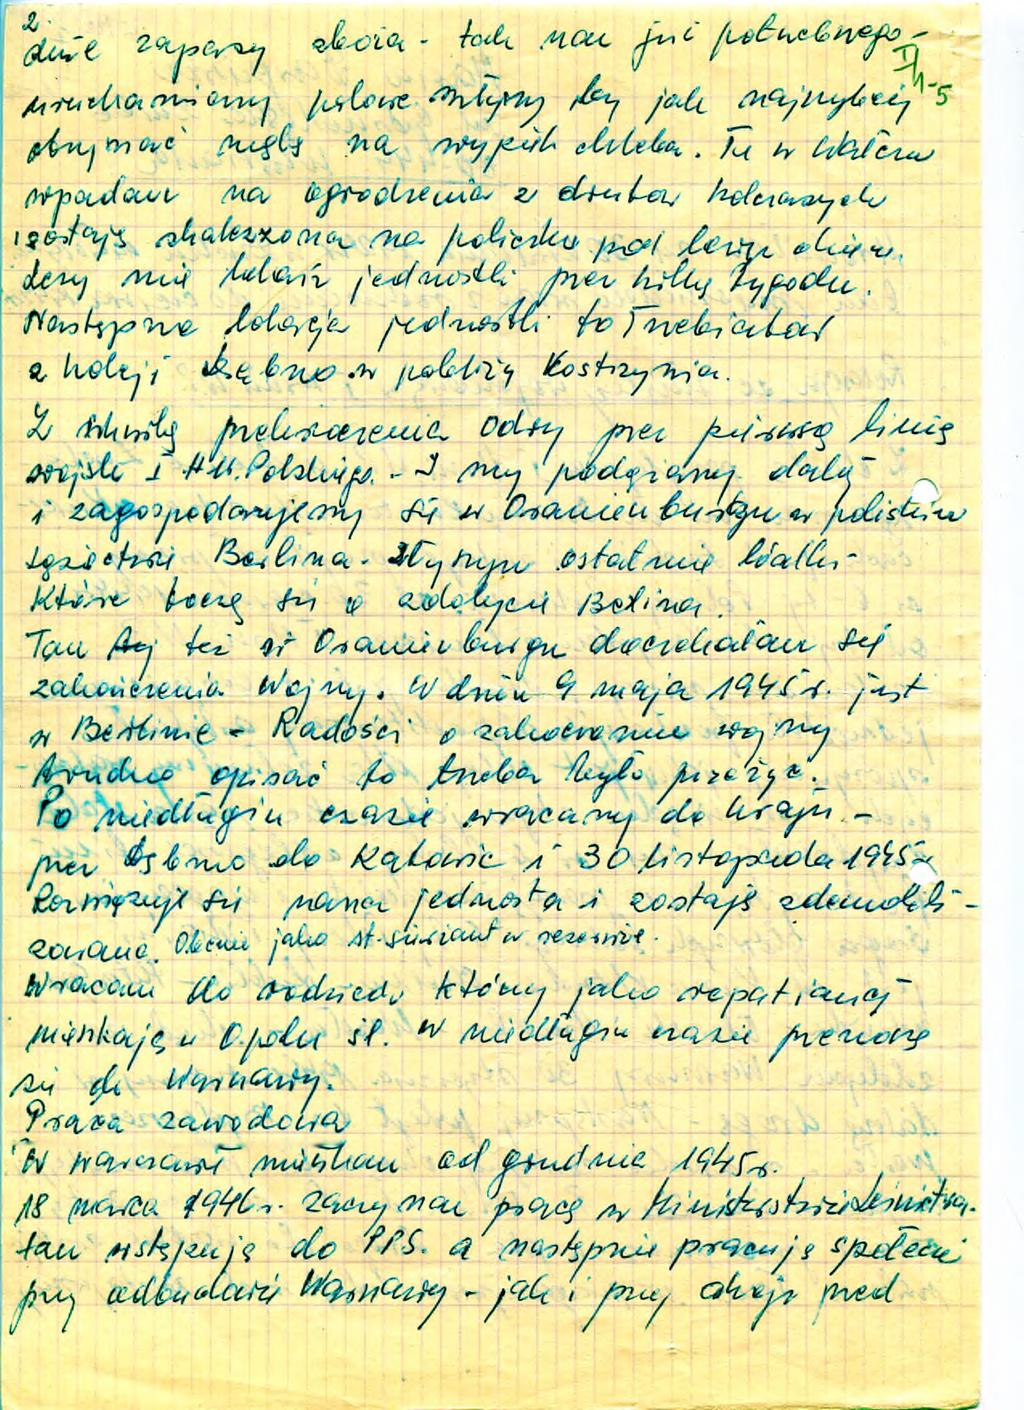 2
duże zapasy zboża - tak nam już potrzebnego -
II/1-5
uruchamiamy polowe młyny by jak najszybciej
otrzymać mąkę na wypiek chleba. Tu w Wałczu
wpadam na ogrodzenia z drutów kolczastych
i zostaję skaleczona na policzku pod lewym okiem.
Leży mie lokacja jednostki przez kilka tygodni.
Następna lokacja jednostki to Trzebiatów
a kolej i Dębno w pobliżu Kostrzynia.
Z chwilą przekroczenia Odry przez pierwszą linię
wojsk I A.W.Polskiego. - I my podążamy dalej
i zagospodarujemy się w Oranienburgu w pobliskim
sąsiectwie Berlina. Słyszym ostatnie walki -
Które toczą się o zdobycie Belina.
Tam też w Oranienburgu doczekałam się
zakończenia Wojny. W dniu 9 maja 1945 r. jest
w Berlinie - Radości o zakończeniu wojny
trudno opisać to trzeba było przeżyć.
Po niedługim czasie wracamy do kraju -
przez Dębno do Katowic i 30 listopada 1945 r
Rozwiązuje się nasza jednosta i zostaję zdemobili -
zowana. Obecnie jako st. sierżant w rezerwie.
Wracam do rodziców którzy jako repatrianci
mieszkają w Opolu śl. W niedługim czasie przenoszę
się do Warszawy.
Praca zawodowa
W Warszawie mieszkam od grudnia 1945 r.
18 marca 1946 r. zaczynam pracę w Ministerstwie Leśnictwa.
tam wstępuję do PPS. a następnie pracuję społecznie
przy odbudowie Warszawy - jak i przy akcji przed